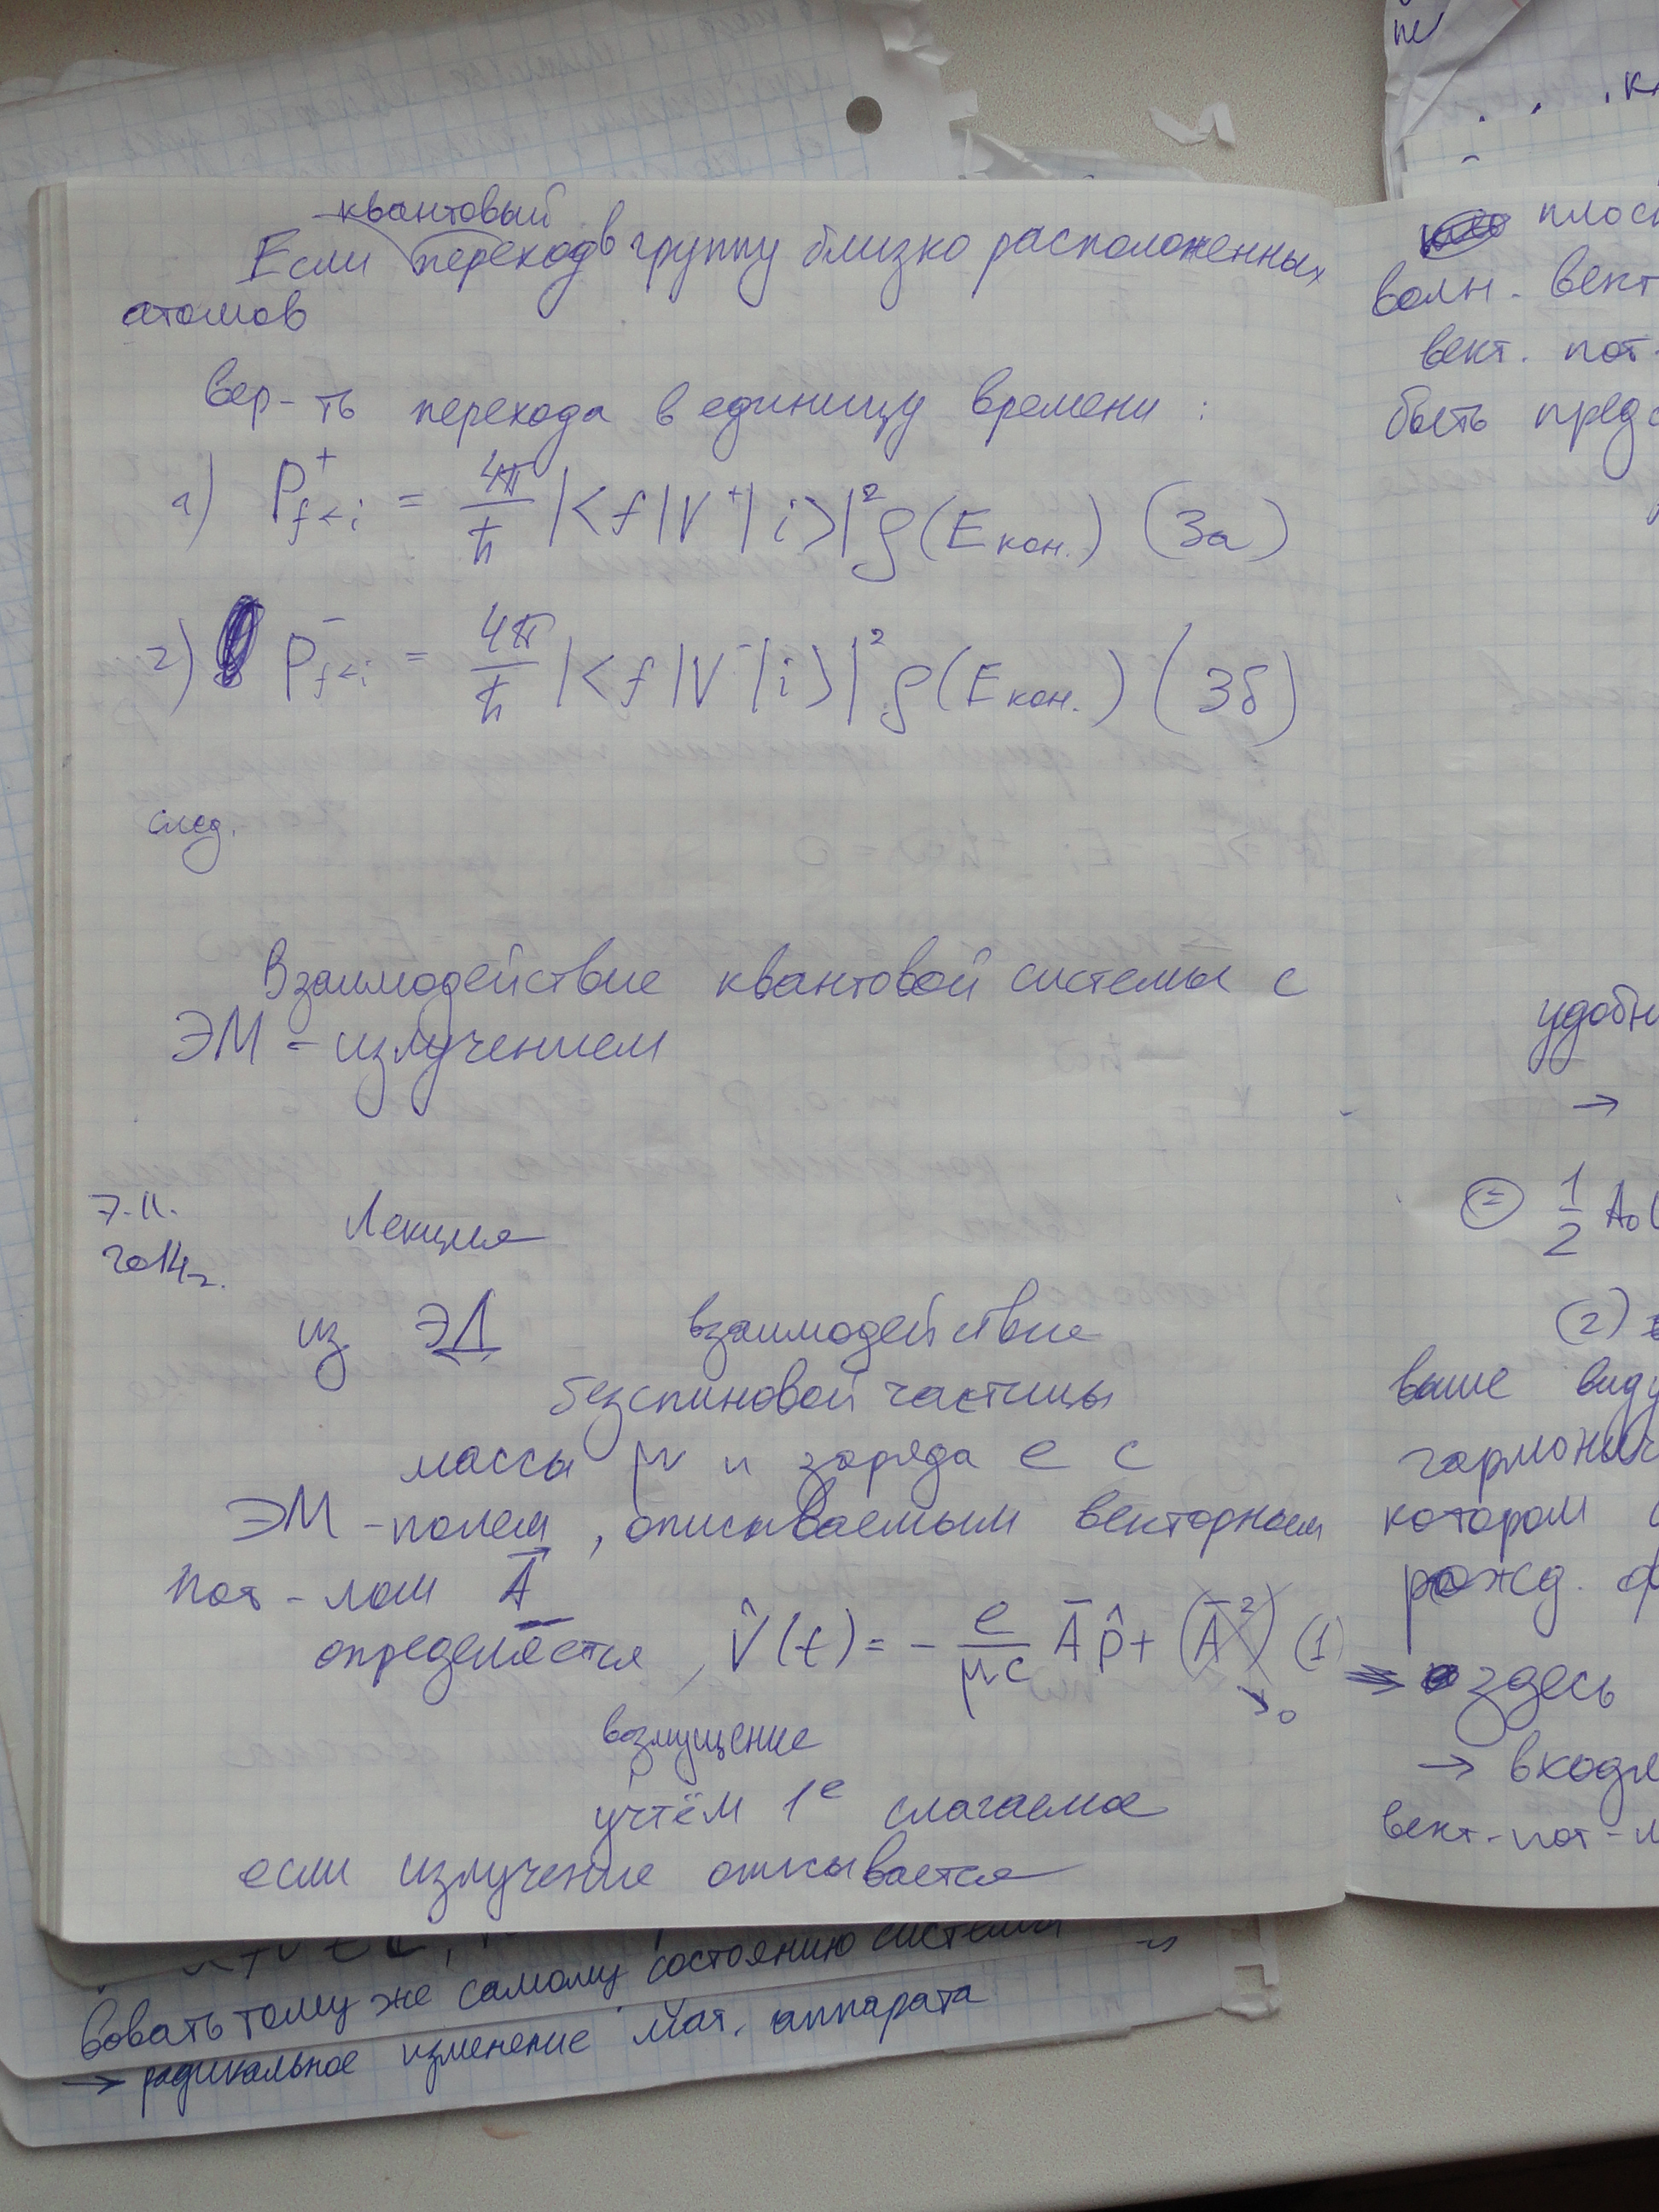 квантовый
Если переход в группу близко расположенных
атомов
вер-ть перехода в единицу времени :
1) P⁺f←i = 4π/ħ |<f|V⁺|i>|² ρ(Eкон.) (3а)
2) P⁻f←i = 4π/ħ |<f|V⁻|i>|² ρ(Eкон.) (3б)
след.
Взаимодействие квантовой системы с
ЭМ - излучением
7.11. Лекция
2014г.
из ЭД взаимодействие
безспиновой частицы
массы μ и заряда e с
ЭМ - полем, описываемым векторным
пот - лом A⃗
определяется, V̂(t) = - e/μc A̅ p̂ + (A̅²) (1)
→0
возмущение
учтём 1е слагаемое
если излучение описывается
плоск
волн. вект
вект. пот.
быть предс
удобн
→
= 1/2 A₀(
(2)
выше виду
гармонич
котором
рожд.
здесь
→ входя
вект-пот-л
вовать тому же самому состоянию системы
→ радикальное изменение Мат. аппарата